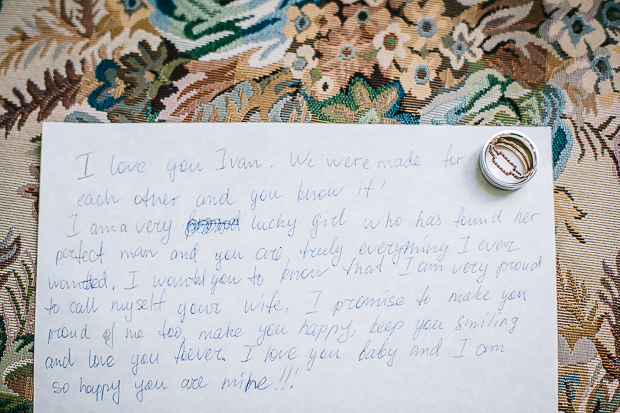 I love you Ivan. We were made for
each other and you know it!
I am a very lucky girl who has found her
perfect man and you are truly everything I ever
wanted. I want you to know that I am very proud
to call myself your wife. I promise to make you
proud of me too, make you happy, keep you smiling
and love you foever. I love you baby and I am
so happy you are mine!!!